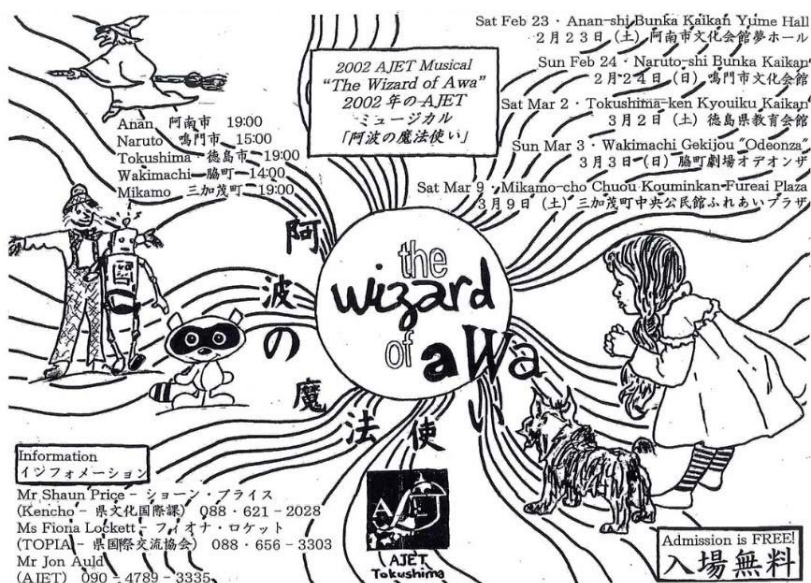 Sat Feb 23 · Anan-shi Bunka Kaikan Yume Hall
2月23日 (土) 阿南市文化会館夢ホール
Sun Feb 24 · Naruto-shi Bunka Kaikan
2月24日 (日) 鳴門市文化会館
Sat Mar 2 · Tokushima-ken Kyouiku Kaikan
3月2日 (土) 徳島県教育会館
Sun Mar 3 · Wakimachi Gekijou "Odeonza"
3月3日 (日) 脇町劇場オデオンザ
Sat Mar 9 · Mikamo-cho Chuou Kouminkan-Fureai Plaza
3月9日 (土) 三加茂町中央公民館ふれあいプラザ
2002 AJET Musical
"The Wizard of Awa"
2002年のAJET
ミュージカル
「阿波の魔法使い」
Anan 阿南市 19:00
Naruto 鳴門市 15:00
Tokushima 徳島市 19:00
Wakimachi 脇町 14:00
Mikamo 三加茂町 19:00
the
wizard
of aWa
阿波の魔法使い
Information
インフォメーション
Mr Shaun Price - ショーン・プライス
(Kencho - 県文化国際課) 088 - 621 - 2028
Ms Fiona Lockett - フィオナ・ロケット
(TOPIA - 県国際交流協会) 088 - 656 - 3303
Mr Jon Auld
(AJET) 090 - 4789 - 3335
AJET
AJET
Tokushima
Admission is FREE!
入場無料